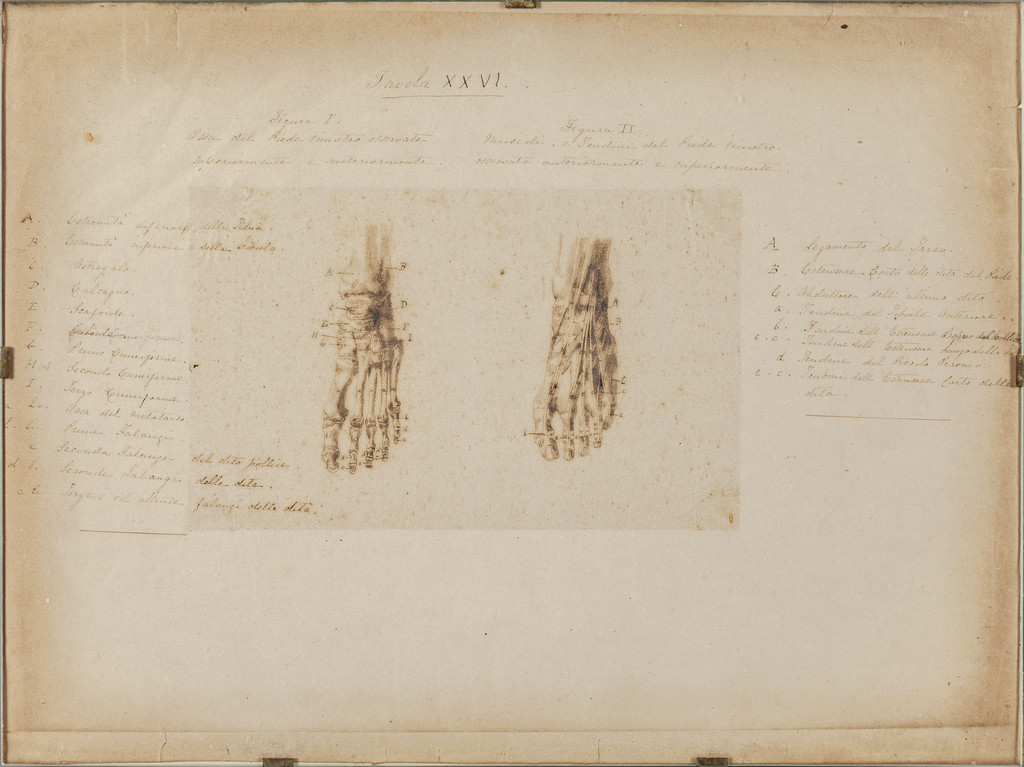 Tavola XXVI.
Figura I.
Ossa del Piede sinistro osservato
superiormente, e anteriormente.
Figura II.
Muscoli, e Tendini del Piede sinistro.
osservato anteriormente e superiormente.
A. Estremità inferiore della Tibia.
B. Estremità inferiore della Fibula.
C. Astragalo.
D. Calcagno.
E. Scafoide.
F.
G. Primo Cuneiforme.
H. Secondo Cuneiforme
I. Terzo Cuneiforme
Ossa del metatarso
Prime Falangi.
c Seconda Falange del dito pollice.
d Seconde Falangi delle dita.
Terze ed ultime falangi delle dita.
A. Legamento del Tarso.
B. Estensore Corto delle dita del Piede
C. Abduttore dell'ultimo dito.
a. Tendine del Tibiale anteriore.
b. Tendine dell'Estensore
c. c. Tendine dell'Estensore lungo delle
d Tendine del Piccolo Peroneo
e. e. Tendine dello Estensore Corto delle
dita.
A
B
D
F
I
A